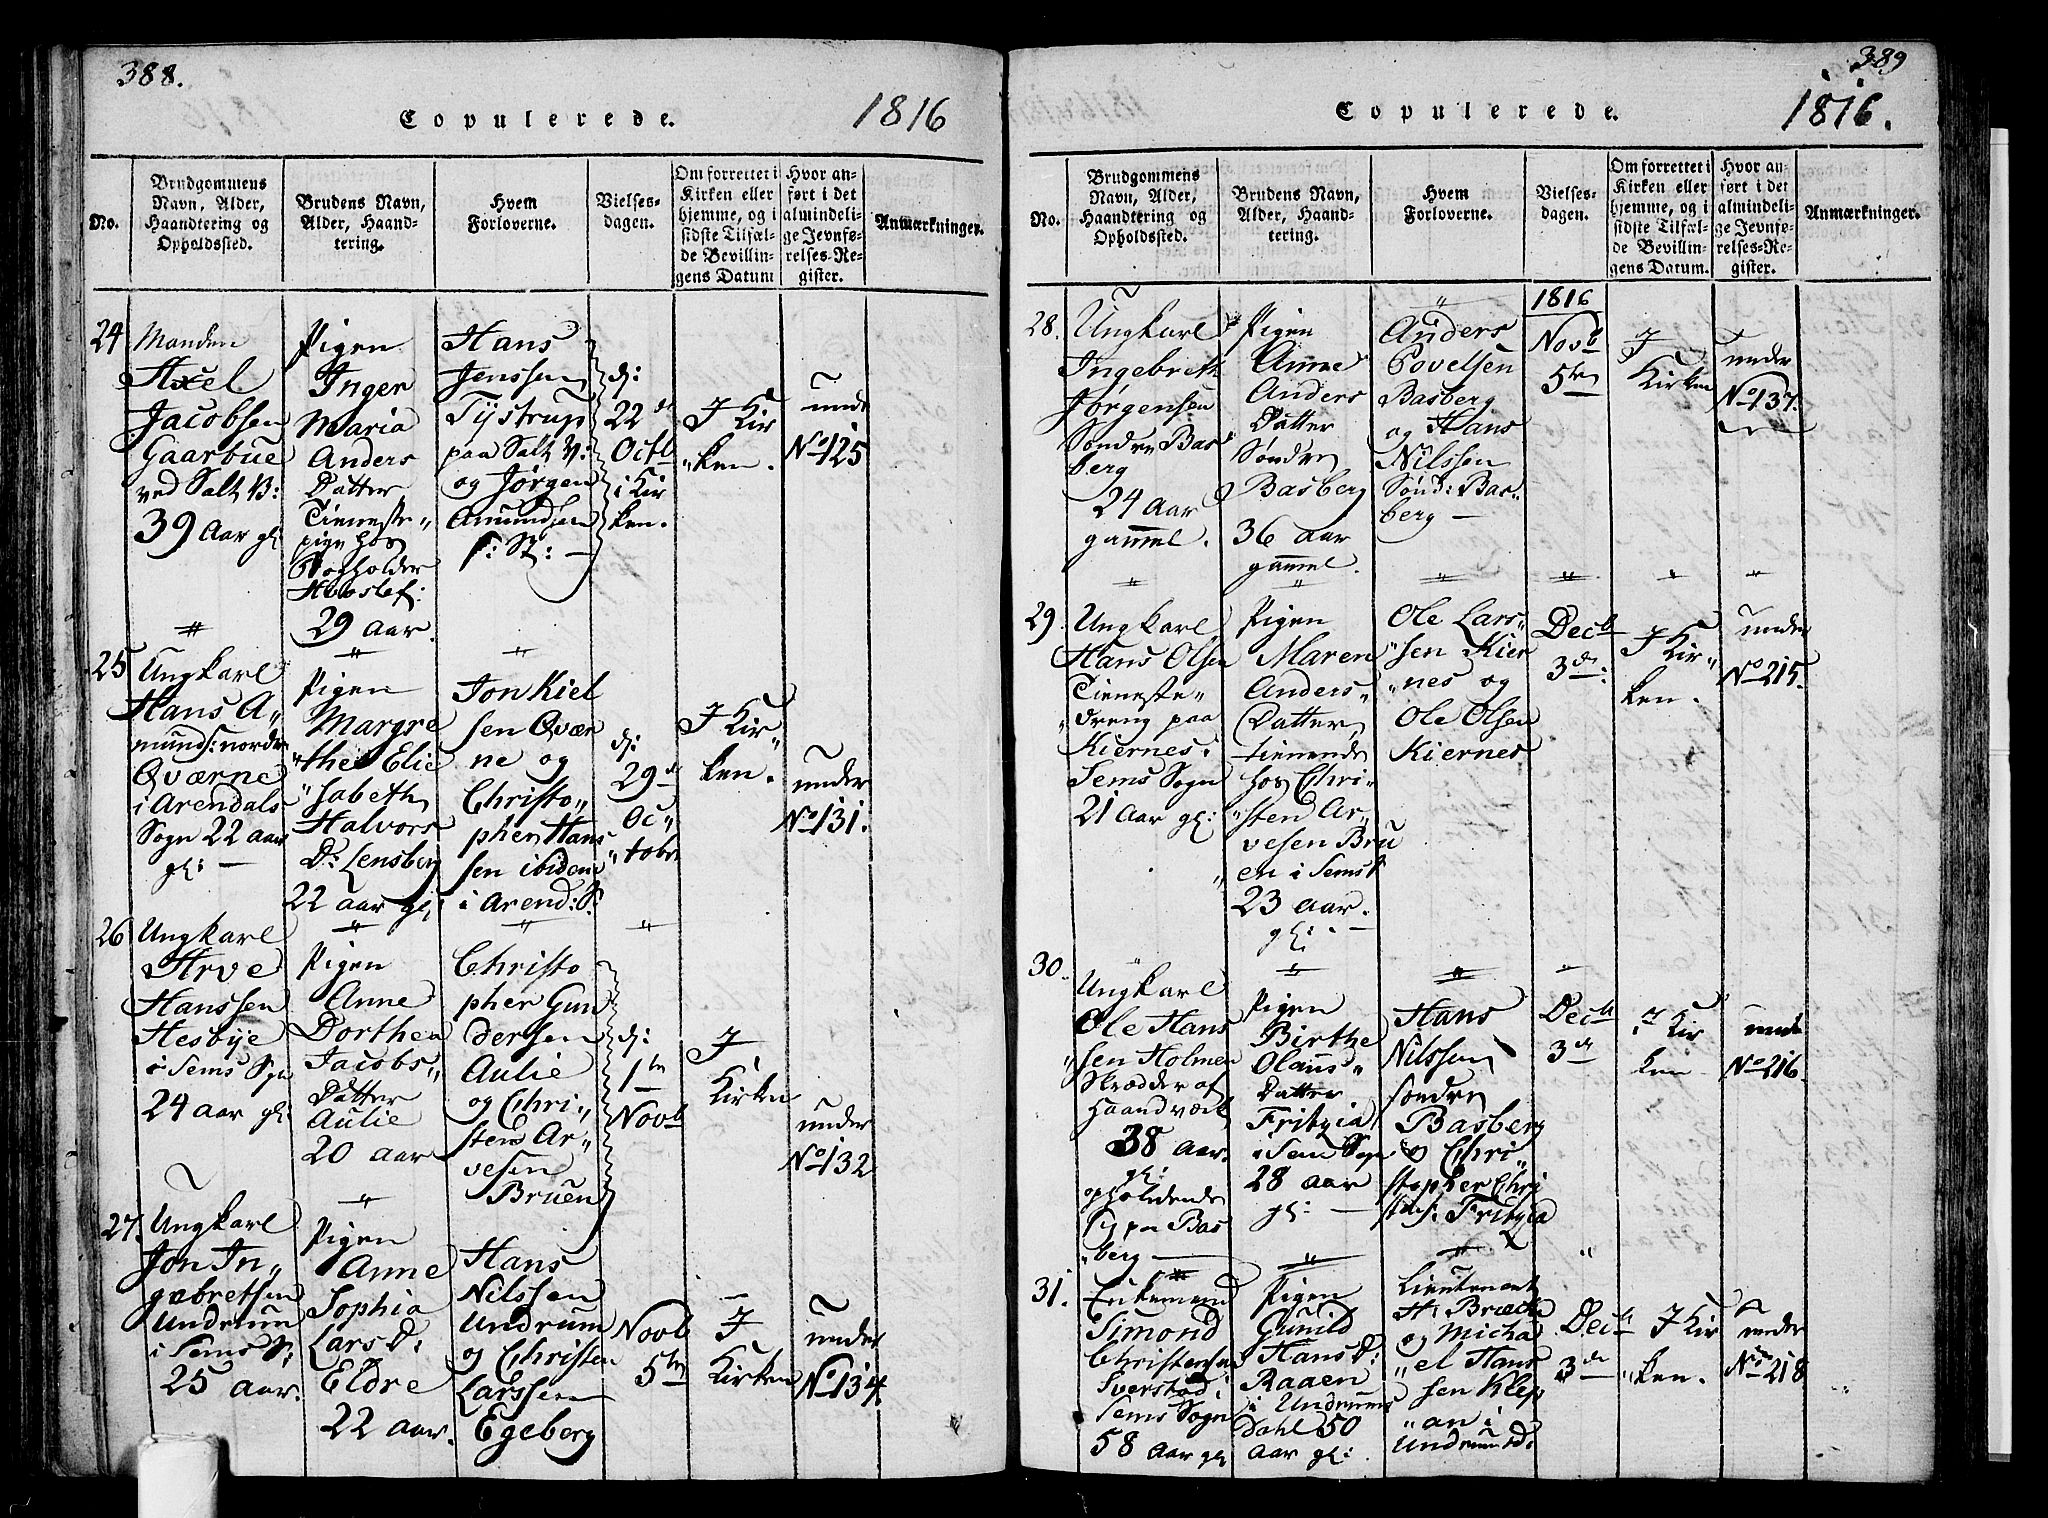 388.
Copulerede.
1816
No.
Brudgommens
Navn, Alder,
Haandtering og
Opholdssted.
Brudens Navn,
Alder, Haand-
tering.
Hvem
Forloverne.
Vielses-
dagen.
Om forrettet i
Kirken eller
hjemme, og i
sidste Tilfæl-
de Bevillin-
gens Datum
Hvor an-
ført i det
almindeli-
ge Jevnfø-
relses-Re-
gister.
Anmærkninger.
24
Manden
Axel
Jacobsen
Gaarbue
ved Salt V:
39 Aar gl:
Pigen
Inger
Maria
Anders
Datter
Tieneste-
pige hos
29 Aar.
Hans
Jenssen
Tystrup
paa Salt V:
og Jørgen
Amundsen
d:
22 d
Octb
i Kir
ken.
I Kir
"ken.
unde
No 125
25
Ungkarl
Hans A„
munds: nordre
Qværne
i Arendals
Sogn 22 aar
gl: —
Pigen
Margre
"the Elie
"sabeth
Halvors
D: Lensberg
22 aar gl:
Jon Kiel
sen Qvær
ne og
Christo„
pher Hans
sen ibidem
i Arend: S.
d:
29 d
Oc„
"tobr
I Kir„
ken.
under
No 131.
26
Ungkarl
Arve
Hanssen
Hesbye
i Sems Sgn
24 aar gl:
Pigen
Anne
Dorthea
Jacobs„
Datter
Aulie
20 aar
Christo
pher Gun
dersen
Aulie
og Chri„
sten Ar„
vesen
Bruen
d:
1 ten
Novb
I
Kirken
under
No 132
27.
Ungkarl
Jon In„
gebretsen
Undrum
i Sems S:
25 aar.
Pigen
Anne
Sophia
Lars D:
Eldre
22 aar.
Hans
Nilssen
Undrum
og Christen
Larssen
Egeberg
Novb
5 ten
I
Kirken
under
No 134.
389
Copulerede.
1816.
No.
Brudgommens
Navn, Alder,
Haandtering og
Opholdssted.
Brudens Navn,
Alder, Haand-
tering.
Hvem
Forloverne.
Vielses-
dagen.
Om forrettet i
Kirken eller
hjemme, og i
sidste Tilfæl-
de Bevillin-
gens Datum.
Hvor an-
ført i det
almindeli-
ge Jevnfø-
relses-Re-
gister.
Anmærkninger.
28.
Ungkarl
Ingebreth
Jørgensen
Søndre Bas
berg
24 Aar
gammel.
Pigen
Anne
Anders
Datter
Søndre
Basberg
36 aar
gammel.
Anders
Povelsen
Basberg
og Hans
Nilssen
Sønd: Bas„
berg —
1816
Novb
5 ten
I
Kirken
under
No 137.
29
Ungkarl
Hans Olsen
Tieneste„
"dreng paa
Kiernes.
Sems Sogn
21 Aar gl:
Pigen
Maren
Anders„
Datter
tienende
hos Chri„
"sten Ar„
vesen Bru
"en i Sems S
23 aar.
gl: —
Ole Lars„
"sen Kier
"nes og
Ole Olsen
Kiernes
Decb
3 die:
I Kir„
ken.
under
No 215.
30.
Ungkarl
Ole Hans
"sen Holmen
Skrædder af
Haandværk
38 aar.
gl:
opholdende
sig paa Bas
"berg —
Pigen
Birthe
Olaus„
Datter
Fritzia
i Sem Sogn
28 aar
gl: —
Hans
Nilssen
søndre
Basberg
og Chri„
stopher Chri
stens: Fritzia
Decb
3 die
i Kir
ken
under
No 216.
31.
Enkemand
Simond
Christensen
Sverstad i
Sems Sogn
58 Aar gl:
Pigen
Gunild
Hans D:
Raaen
i Undrums
Dahl 50
aar gl:
Lieutenant
H: Bræcke
og Micha
"el Hans
sen Klep
"an i
Undrumsd:
Decb
3 die
I Kir
"ken.
under
No 218